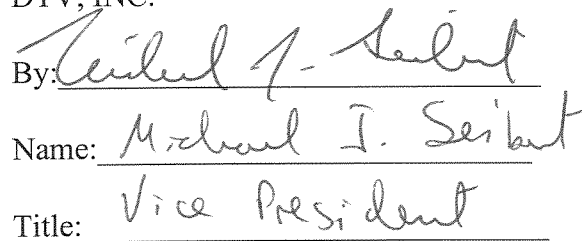 DTV, INC.
By: Michael J. Seibert
Name: Michael J. Seibert
Title: Vice President